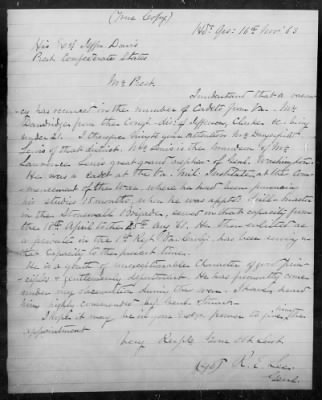 (True Copy)
Hd. Qrs: 16th Nov: 63
His Exc'y Jeff'n Davis
Prest. Confederate States
Mr. Prest.
I understand that a vacan-
cy has occurred in the number of Cadets from Va. Mr
Dandridge from the Cong'l Dis: of Jefferson, Clarke &c. being
over 21. I therefore bring to your attention Mr Dangerfield
Lewis of that district. Mr Lewis is the Grandson of Mr
Lawrence Lewis great grand nephew of Genl. Washington.
He was a cadet at the Va. Mil. Institute, at the com-
mencement of the War, where he had been pursuing
his studies 18 months, when he was appt'd Drill-master
in the Stonewall Brigade, served in that capacity from
the 18th April to the 25th Aug '61. He then enlisted as
a private in the 1st Regt. Va. Cav'y & has been serving in
that capacity to the present time.
He is a youth of unexceptionable Character of good prin-
ciples & gentlemanly deportment. He has personally come
under my observation during the war. I have heard
him highly commended by Genl. Stuart.
I hope it may be in your Exc'ys power to give him the
appointment
Very Resp'y Your Obt. Servt.
Sgd R. E. Lee
Genl.